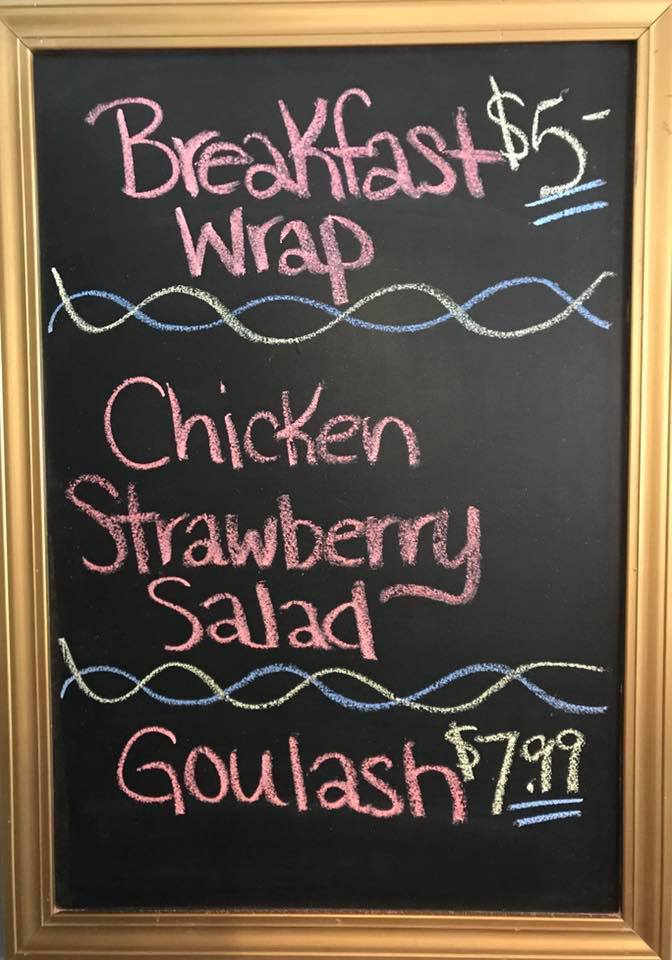 Breakfast $5-
Wrap
Chicken
Strawberry
Salad
Goulash $7.99